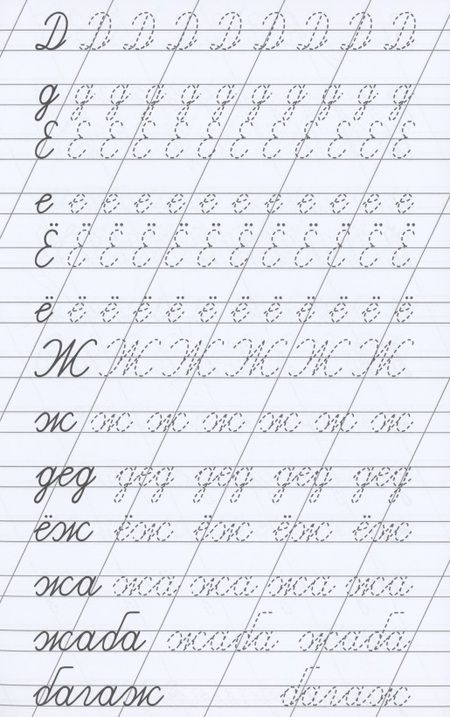 Д Д Д Д Д Д Д Д Д
д д д д д д д д д д д
Е Е Е Е Е Е Е Е Е Е Е Е
е е е е е е е е е е е е
Ё Ё Ё Ё Ё Ё Ё Ё Ё Ё Ё Ё
ё ё ё ё ё ё ё ё ё ё ё ё
Ж Ж Ж Ж Ж Ж
ж ж ж ж ж ж ж
дед дед дед дед дед
ёж ёж ёж ёж ёж
жа жа жа жа жа
жаба жаба жаба
багаж багаж